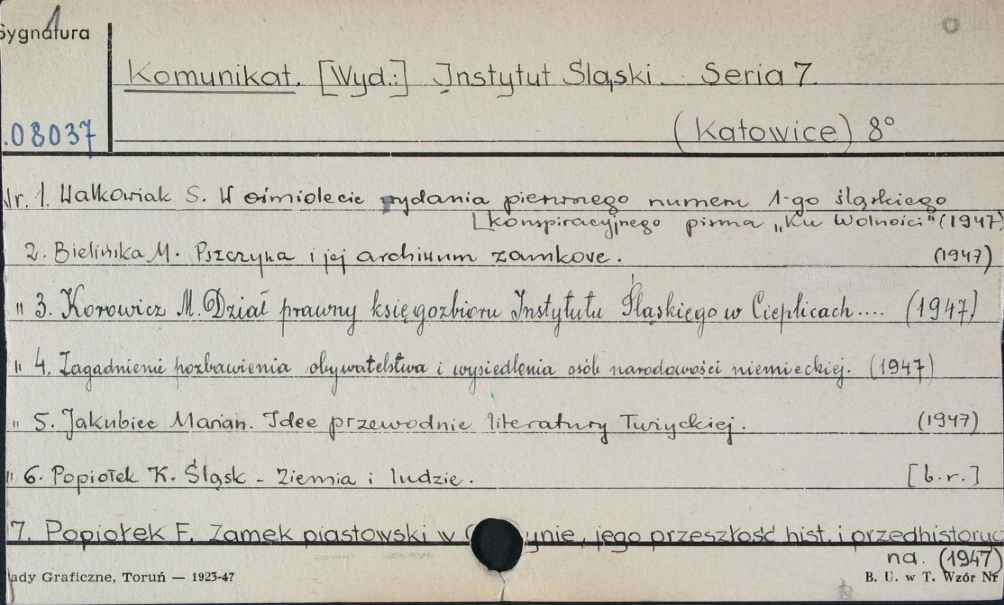 Sygnatura 1
Komunikat. [Wyd.:] Instytut Śląski. Seria 7.
.08037 (Katowice) 8°
Nr. 1. Walkowiak S. W ośmiolecie wydania pierwnego numeru 1-go śląskiego
[konspiracyjnego pisma „Ku Wolności" (1947)
2. Bielińska M. Pszczyna i jej archiwum zamkowe. (1947)
" 3. Korowicz M. Dział prawny księgozbioru Instytutu Śląskiego w Cieplicach.... (1947)
" 4. Zagadnienie pozbawienia obywatelstwa i wysiedlenia osób narodowości niemieckiej. (1947)
" 5. Jakubiec Marian. Idee przewodnie literatury (1947)
" 6. Popiołek K. Śląsk - Ziemia i ludzie. [b.r.]
7. Popiołek F. Zamek piastowski w ynie, jego przeszłość hist. i przedhistorycz
na. (1947)
ady Graficzne, Toruń — 1923-47 B. U. w T. Wzór Nr